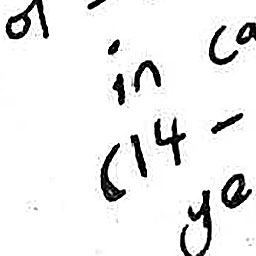 of -
in ca
(14 -
ye